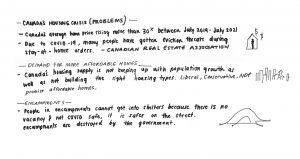 — CANADA'S HOUSING CRISIS (PROBLEMS) —
- Canada's average home price rising more than 30% between July 2019 - July 2021
- Due to COVID-19, many people have gotten eviction threats during
stay-at-home orders. - CANADIAN REAL ESTATE ASSOCIATION
— DEMAND FOR MORE AFFORDABLE HOMES —
- Canada's housing supply is not keeping up with population growth as
well as not building the right housing types. Liberal, Conservative, NDP
promise affordable homes.
— ENCAMPMENTS —
- People in encampments cannot get into shelters because there is no
vacancy & not covid safe, it is safer on the street.
encampments are destroyed by the government.